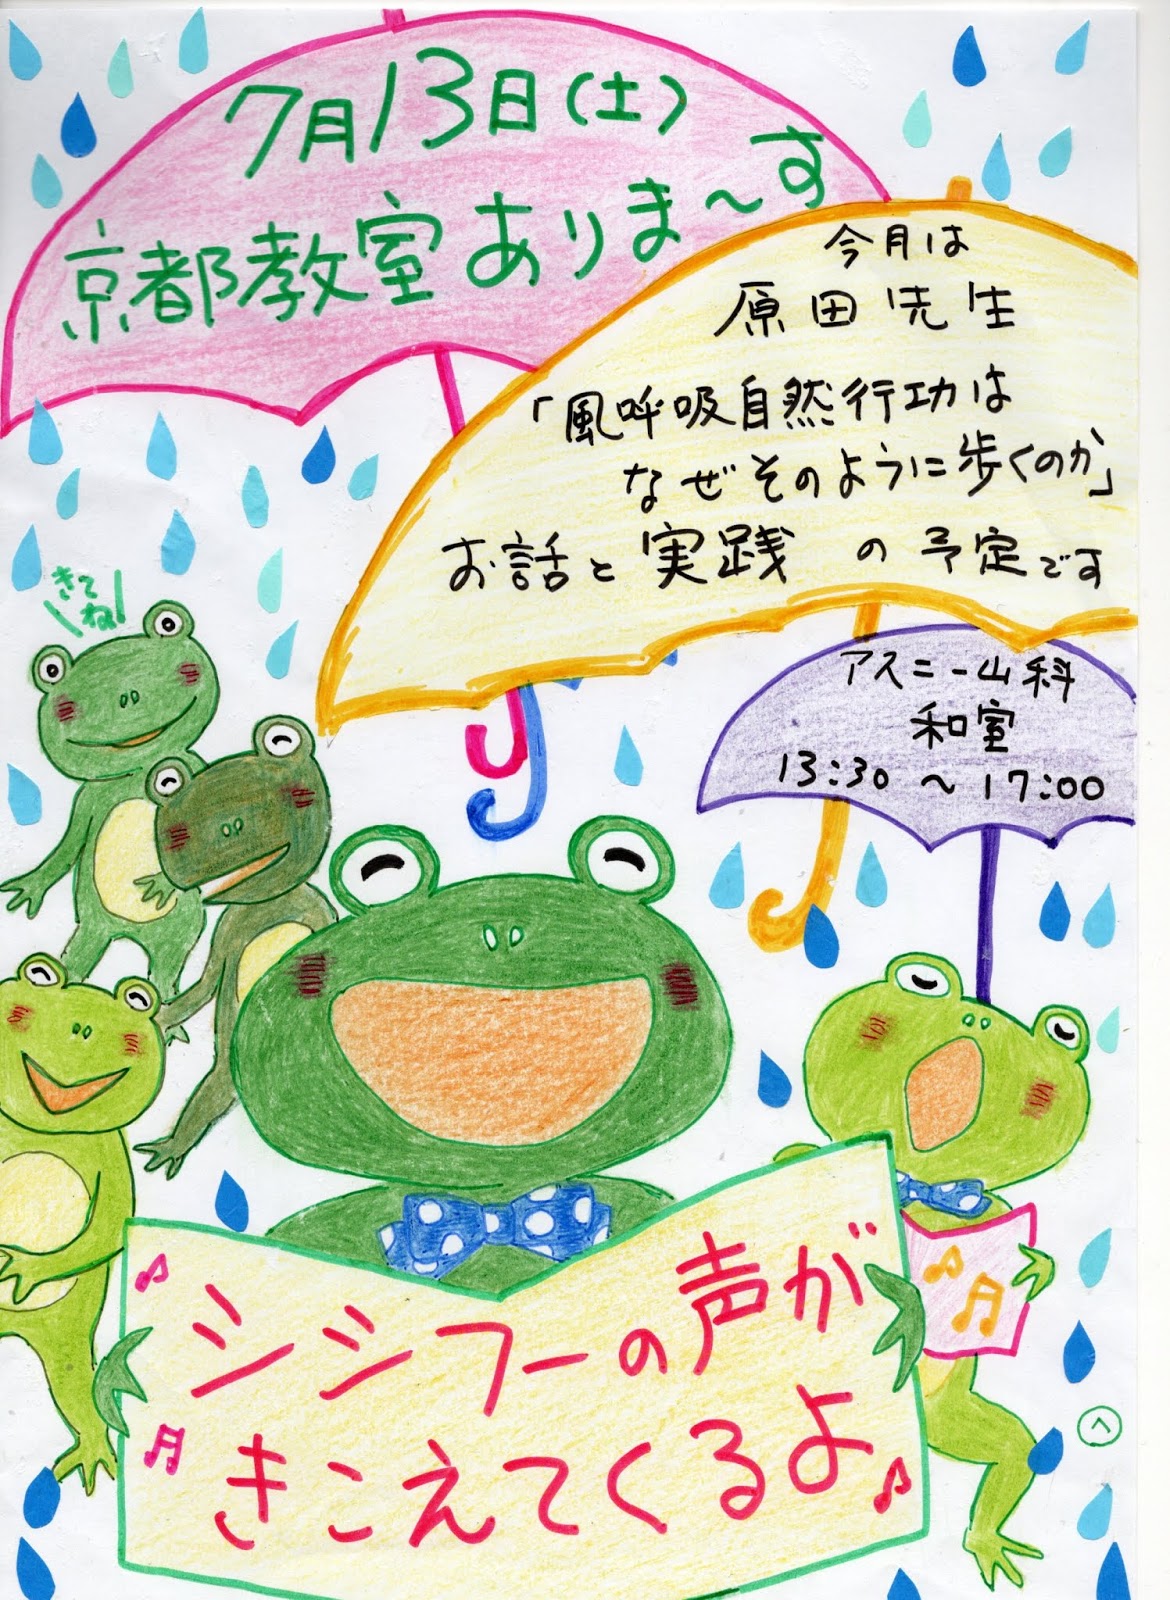 7月13日(土)
京都教室ありま〜す
今月は
原田先生
「風呼吸自然行功は
なぜそのように歩くのか」
お話と実践の予定です
アスニー山科
和室
13:30〜17:00
きて
ね
シシフーの声が
きこえてくるよ
へ